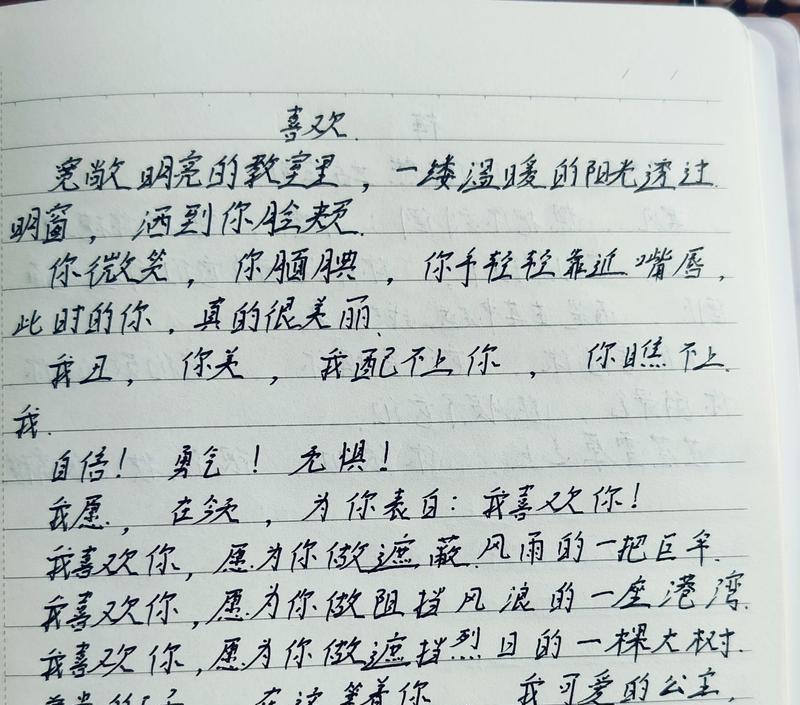 喜欢.
宽敞明亮的教室里，一缕温暖的阳光透过
明窗，洒到你脸颊.
你微笑，你腼腆，你手轻轻靠近嘴唇，
此时的你，真的很美丽.
我丑，你美，我配不上你，你瞧不上
我.
自信！勇气！无惧！
我愿，在今天，为你表白：我喜欢你！
我喜欢你，愿为你做遮蔽风雨的一把巨伞.
我喜欢你，愿为你做阻挡风浪的一座港湾.
我喜欢你，愿为你做遮挡烈日的一棵大树.
在这等着你 我可爱的公主，